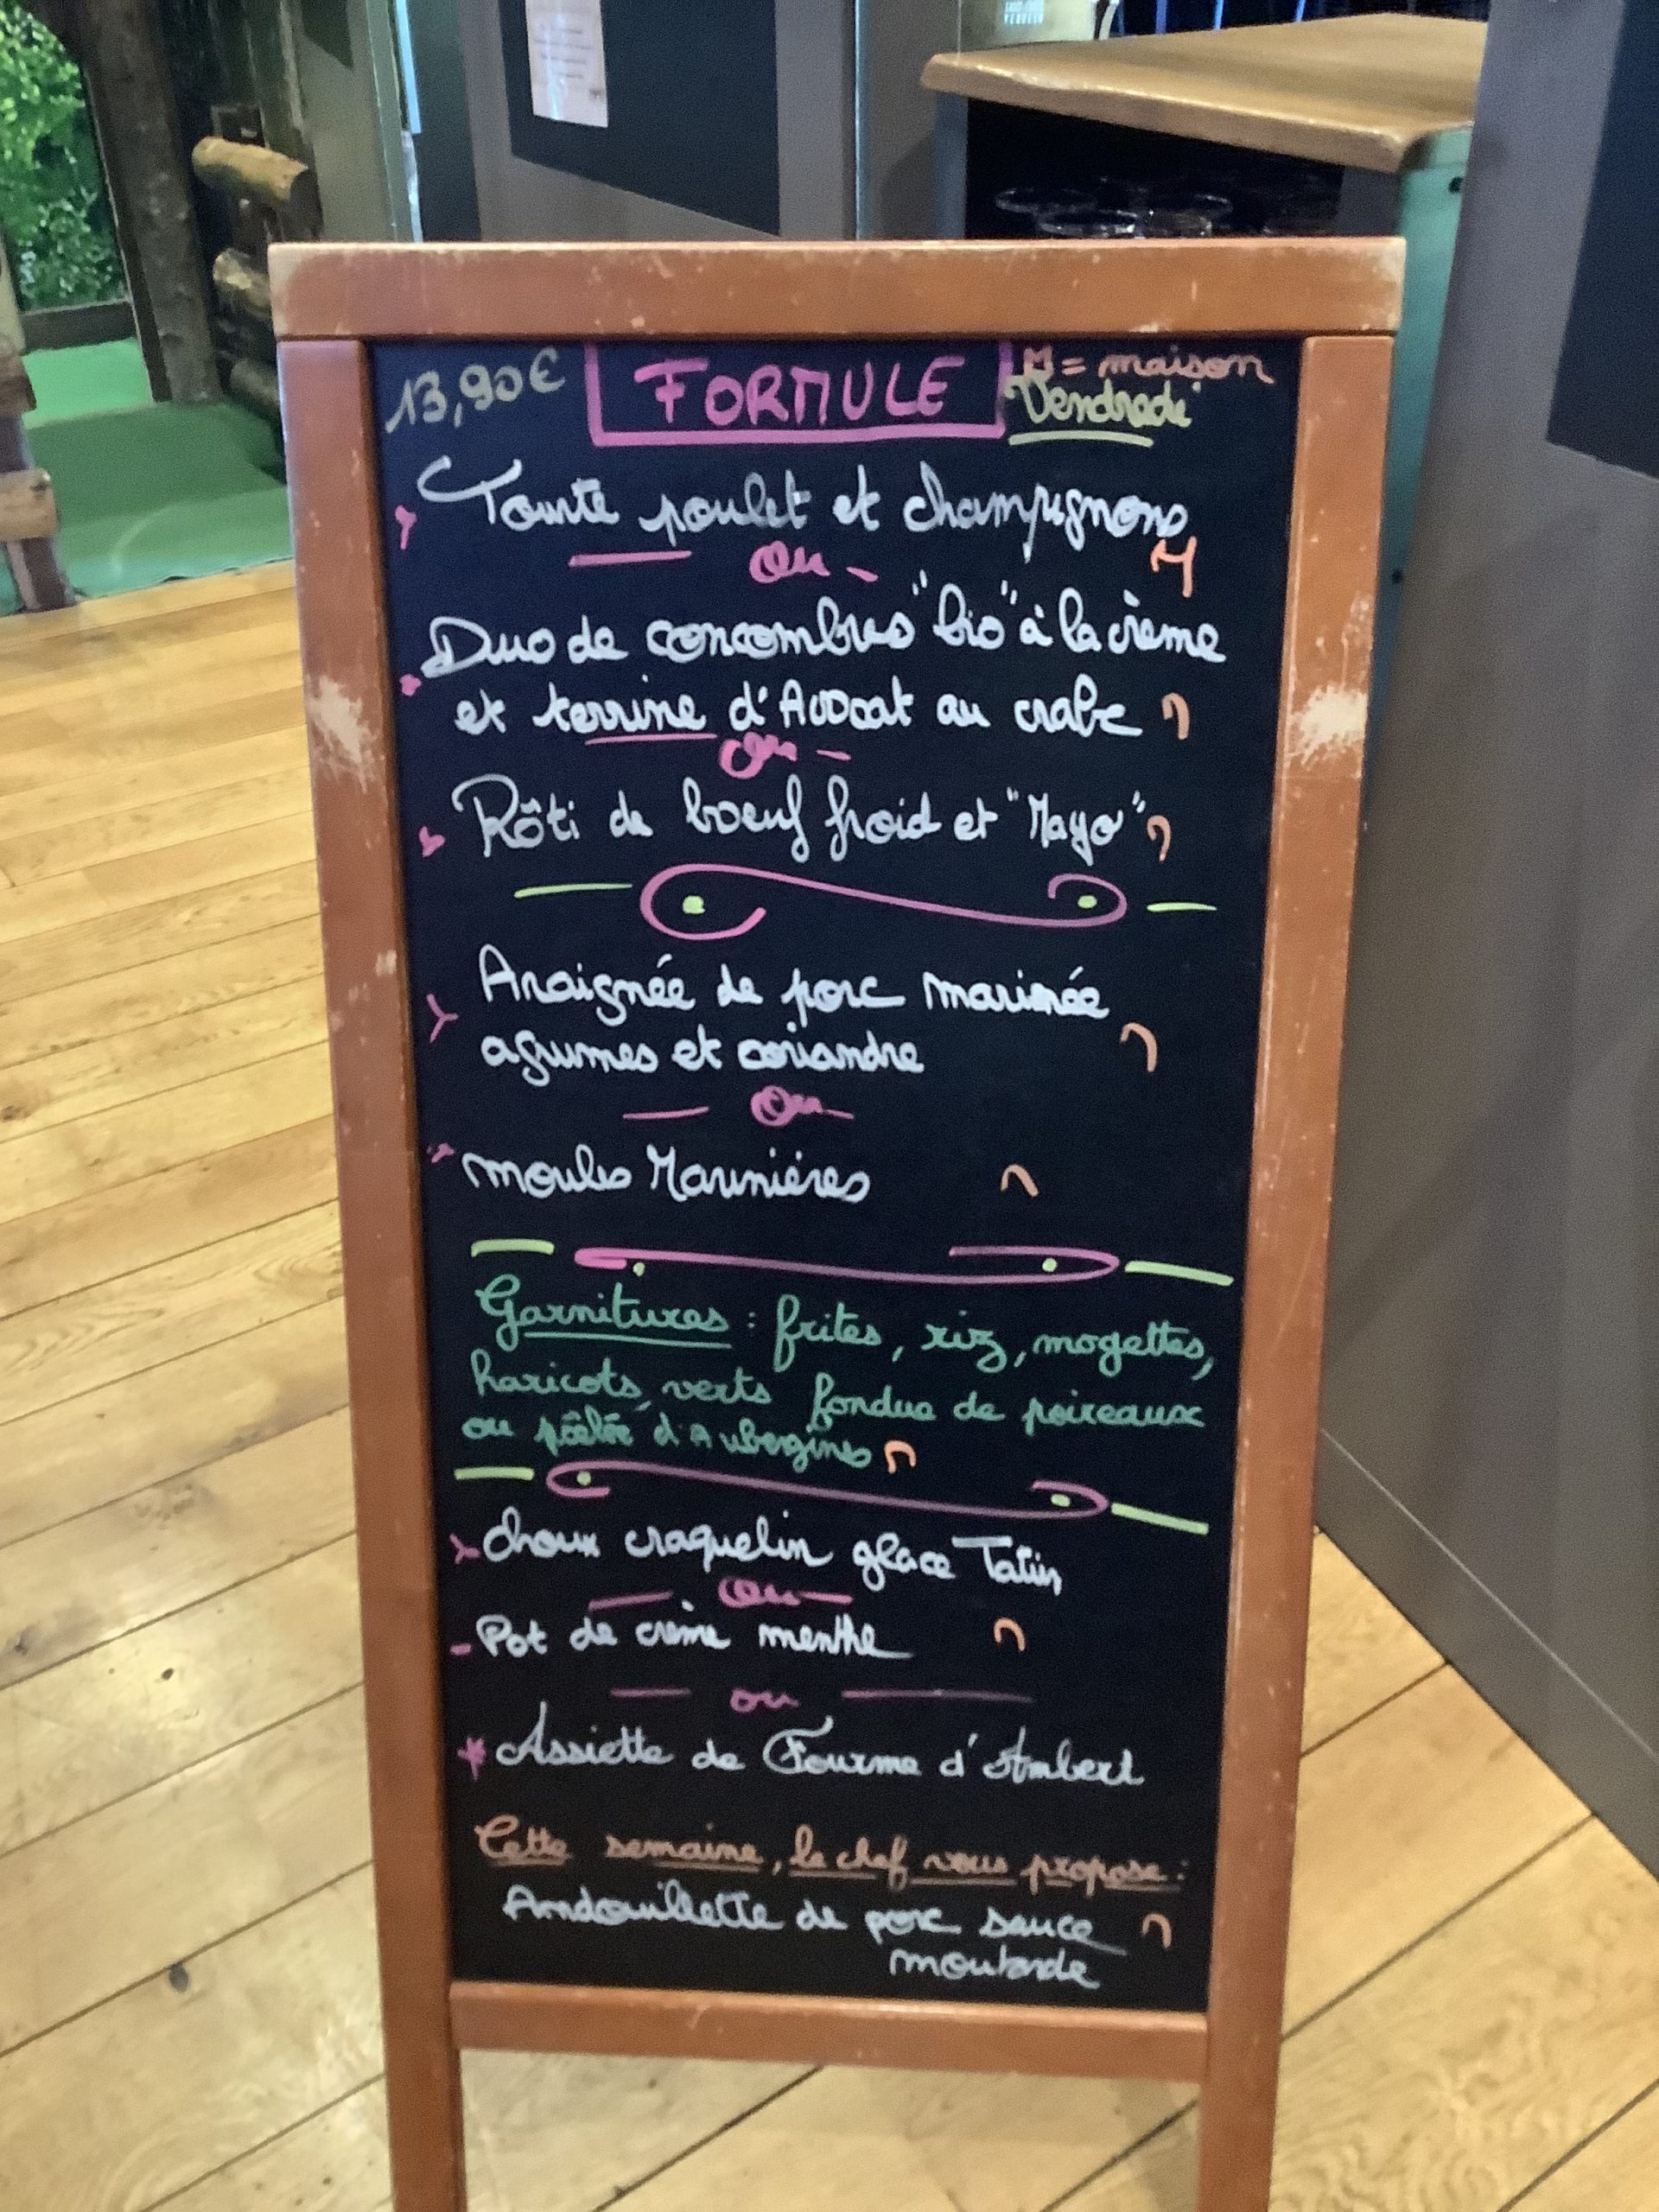 13,90€ FORMULE M = maison
Vendredi
Tourte poulet et champignons
Ou M
Duo de concombres "bio" à la crème
et terrine d'Avocat au crabe
Ou
Rôti de boeuf froid et "Mayo"
Araignée de porc marinée
agrumes et coriandre
Ou
moules Marinières
Garnitures : frites, riz, mogettes,
haricots verts fondue de poireaux
ou pôêlée d'Aubergines
choux craquelin glace Tatin
Ou
Pot de crème menthe
ou
Assiette de Fourme d'Ambert
Cette semaine, le chef vous propose :
Andouillette de porc sauce
moutarde